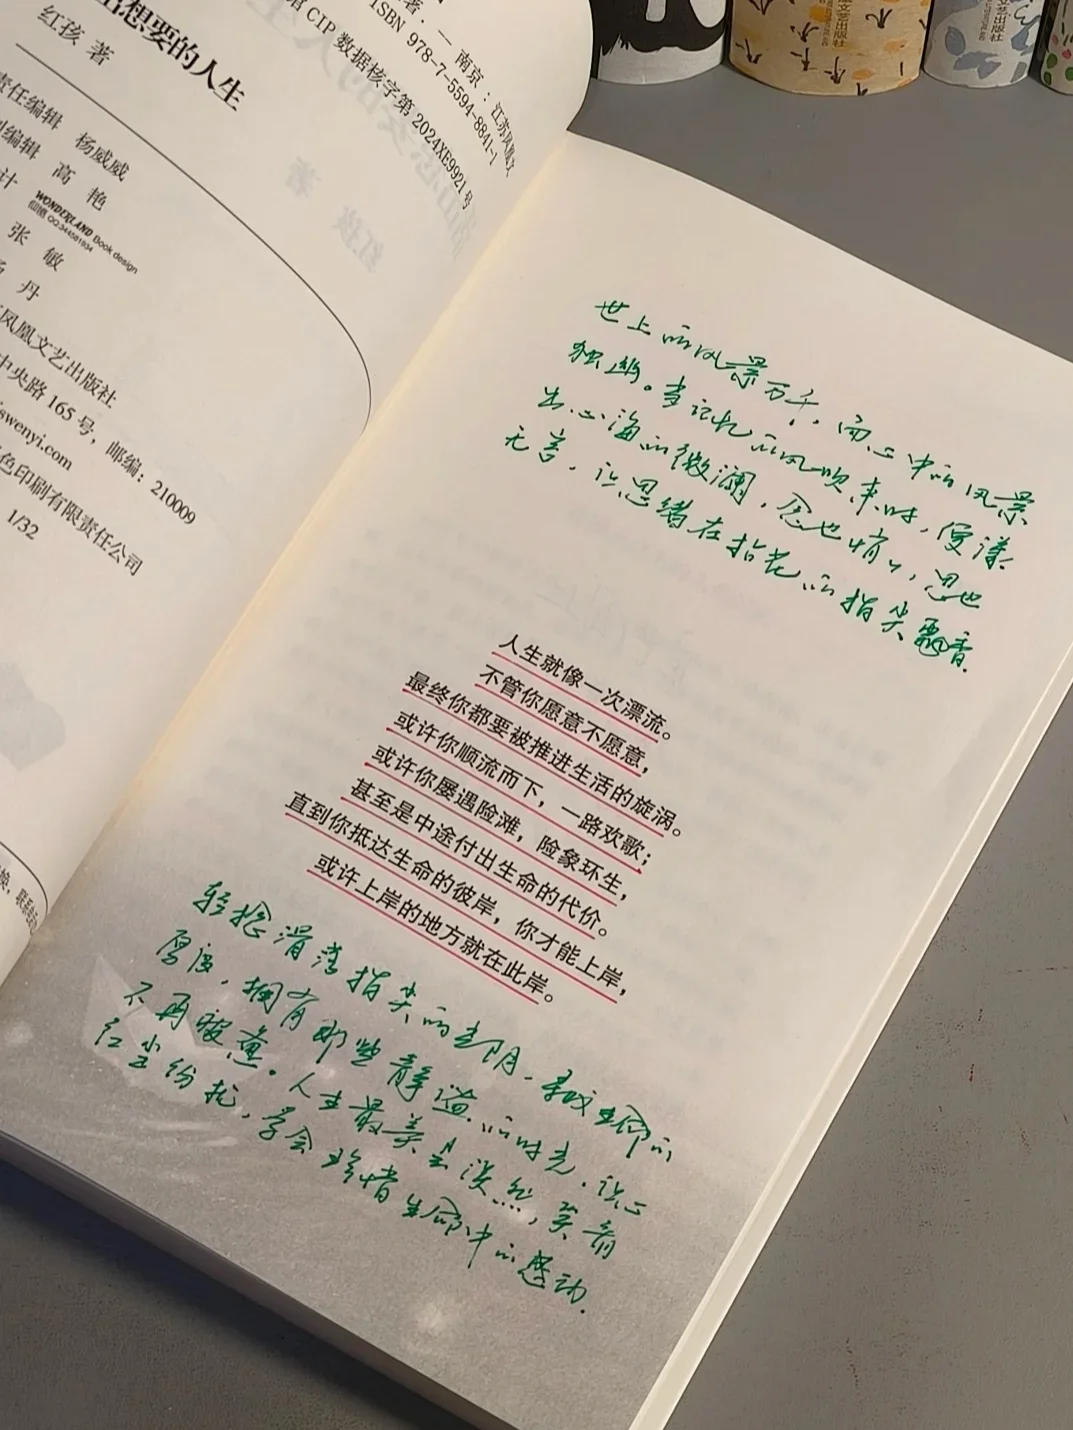 出想要的人生
红孩 著
著. — 南京：江苏凤凰文
ISBN 978-7-5594-8841-1
CIP 数据核字第 2024XE9921 号
责任编辑 杨威威
编辑 高 艳
计 WONDERLAND Book design
仙境 QQ:344581934
张 敏
丹
凤凰文艺出版社
中央路 165 号，邮编：210009
swenyi.com
色印刷有限责任公司
1/32
世上的风景万千，而心中的风景
独幽。当记忆的风吹来时，便漾
出心海的微澜，念也悄悄，思也
无言，让思绪在拈花的指尖飘香。
人生就像一次漂流。
不管你愿意不愿意，
最终你都要被推进生活的旋涡。
或许你顺流而下，一路欢歌；
或许你屡遇险滩，险象环生，
甚至是中途付出生命的代价。
直到你抵达生命的彼岸，你才能上岸，
或许上岸的地方就在此岸。
轻捻滑落指尖的光阴，寻觅生命的
厚度，拥有那些静谧的时光，让心
不再疲惫。人生最美是淡然，笑看
红尘纷扰，学会珍惜生命中的感动。